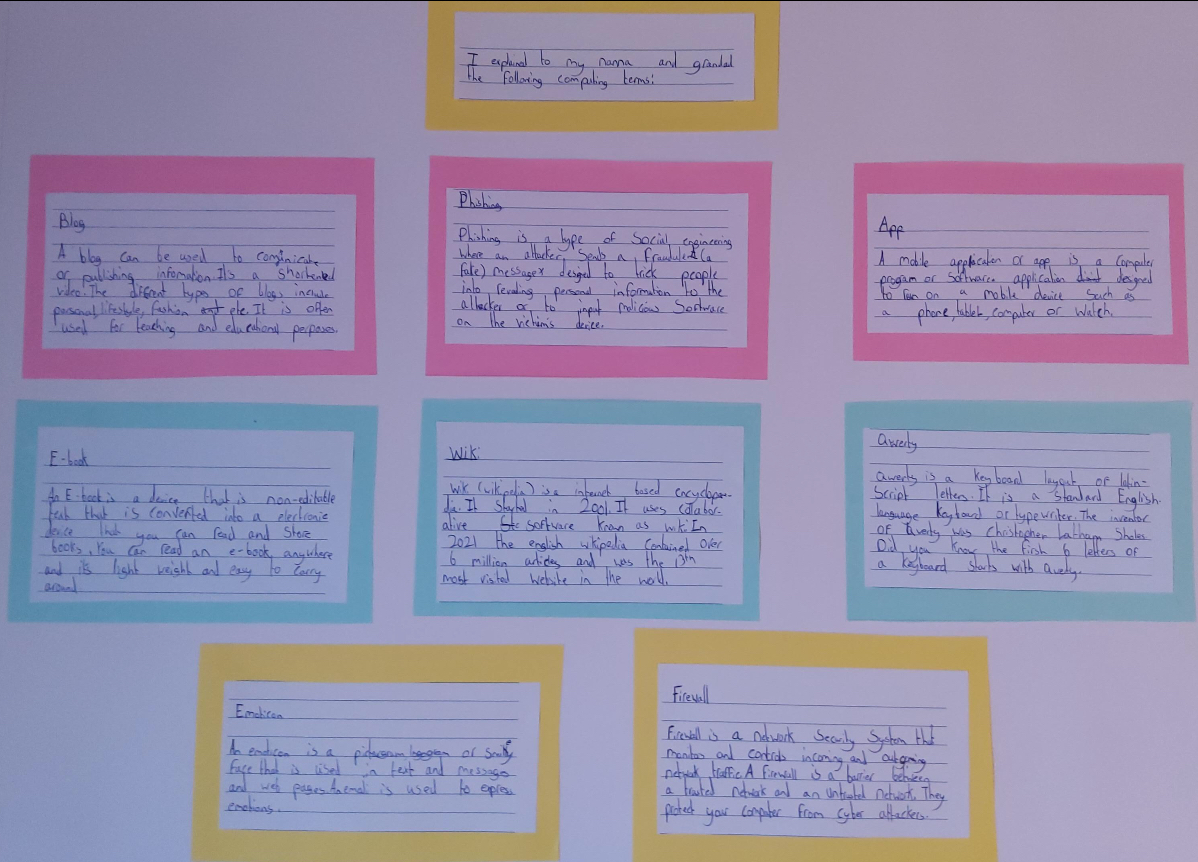 I explained to my nanna and grandad
the following computing terms:
Blog
A blog can be used to
or publishing information. It's a shortened
video. The different types of blogs include
personal, lifestyle, fashion etc. It is often
used for teaching and educational perposes.
Phishing
Phishing is a type of Social engineering
where an attacker sends a fraudulent (a
fake) message desiged to trick people
into revealing personal information to the
attacker or to input malicious Software
on the victim's device.
App
A mobile application or app is a computer
program or Software application designed
to run on a mobile device such as
a phone, tablet, computer or watch.
E-book
An E-book is a device that is non-editable
text that is converted into a electronic
device that you can read and store
books. You can read an e-book anywhere
and its light weight and easy to carry
around.
Wiki
Wiki (wikipedia) is a internet based encyclopae-
dia. It Started in 2001. It uses collabor-
ative software known as wiki. In
2021 the english wikipedia contained over
6 million articles and was the 13th
most visited website in the world.
Qwerty
Qwerty is a keyboard layout of latin-
Script letters. It is a Standard English-
language Keyboard or typewriter. The inventor
of Qwerty was Christopher Latham Sholes
Did you know the first 6 letters of
a keyboard starts with Qwerty.
Emoticon
An emoticon is a or Smily
face that is used in text and messages
and web pages. An is used to express
emotions.
Firewall
Firewall is a network Security System that
monitors and controls incoming and outgoing
network traffic. A firewall is a barrier between
a trusted network and an untrusted network. They
protect your computer from cyber attackers.